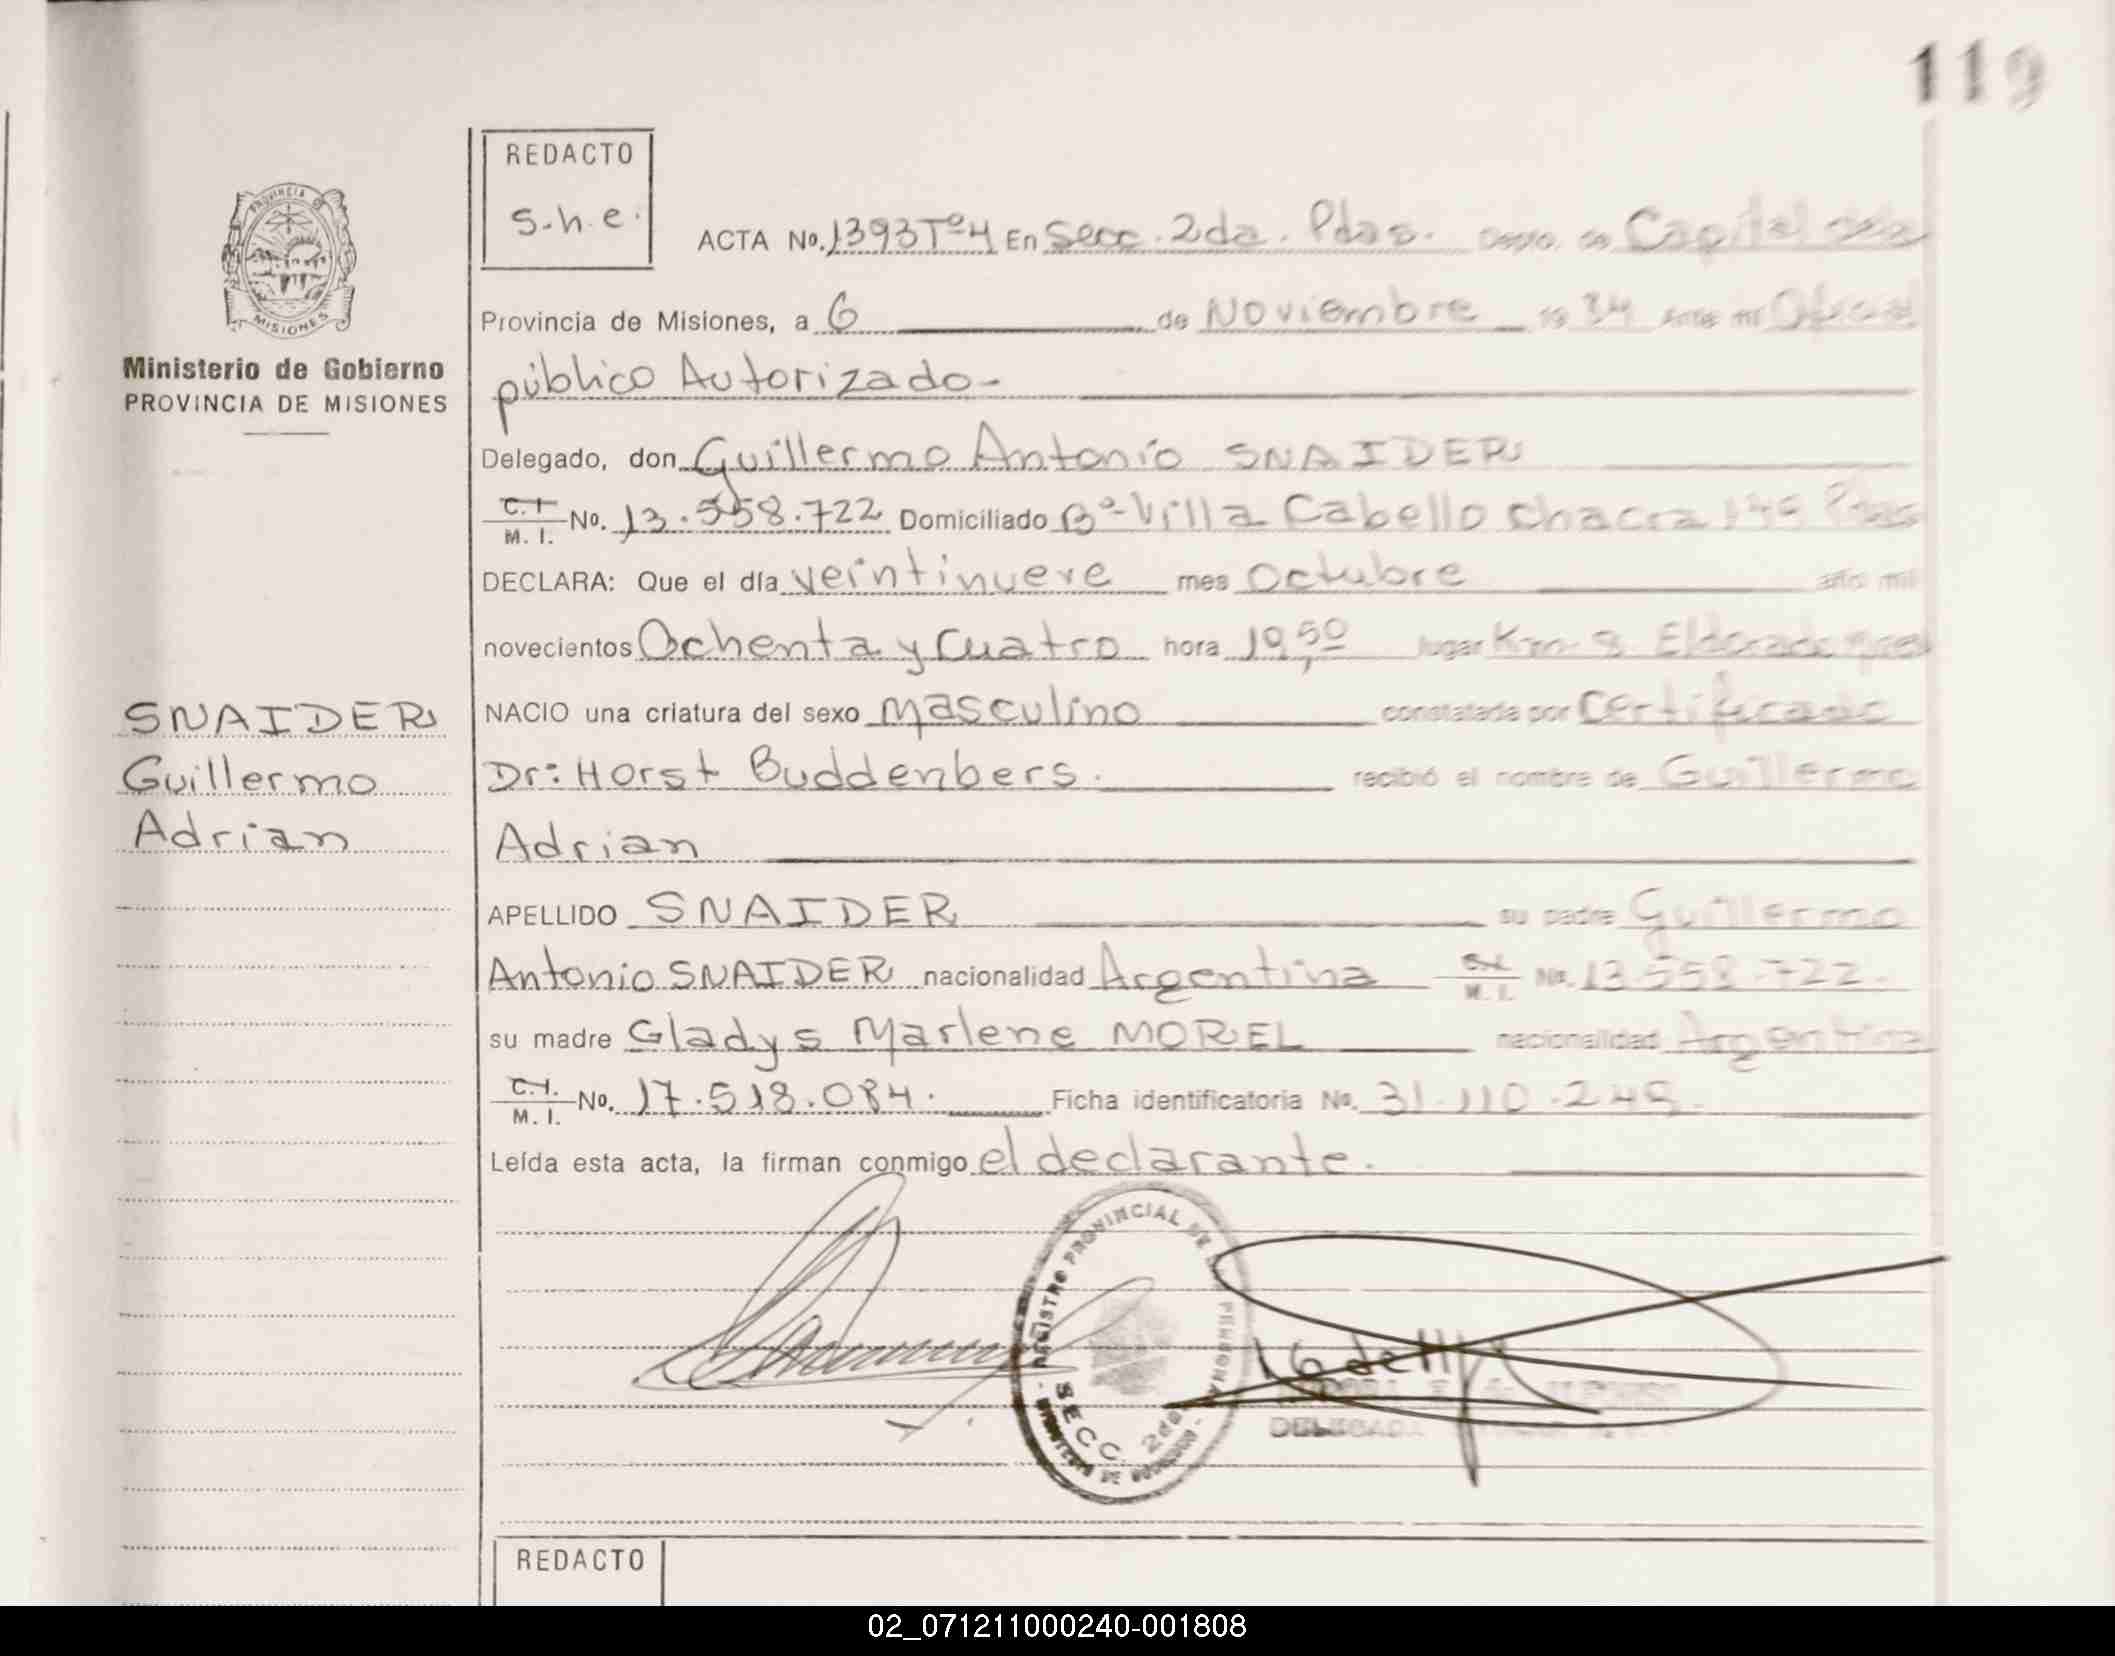 119
REDACTO
s.h.e.
ACTA No. 1393 Tº 4 En Secc. 2da. Pdas. Depto. de Capital de la
PROVINCIA
MISIONES
Provincia de Misiones, a 6 de Noviembre 19 84 Ante mi Oficial
Ministerio de Gobierno
PROVINCIA DE MISIONES
público Autorizado-
Delegado, don Guillermo Antonio SNAIDER
C.I. M.I. No. 13.558.722 Domiciliado Bº Villa Cabello Chacra Pdas
DECLARA: Que el día veintinueve mes Octubre año mil
novecientos Ochenta y Cuatro hora 19,50 lugar Km. 9 Eldorado
SNAIDER
NACIO una criatura del sexo masculino constatada por Certificado
Guillermo
Dr: Horst Buddenbers. recibió el nombre de Guillermo
Adrian
Adrian
APELLIDO SNAIDER su padre Guillermo
Antonio SNAIDER nacionalidad Argentina C.I. M.I. No. 13.558.722.
su madre Gladys Marlene MOREL nacionalidad Argentina
C.I. M.I. No. 17.518.084. Ficha identificatoria No. 31.110.249.
Leída esta acta, la firman conmigo el declarante.
REGISTRO PROVINCIAL DE LAS PERSONAS
SECC. 2da
MINISTERIO DE GOBIERNO
DELEGADA
REDACTO
02_071211000240-001808